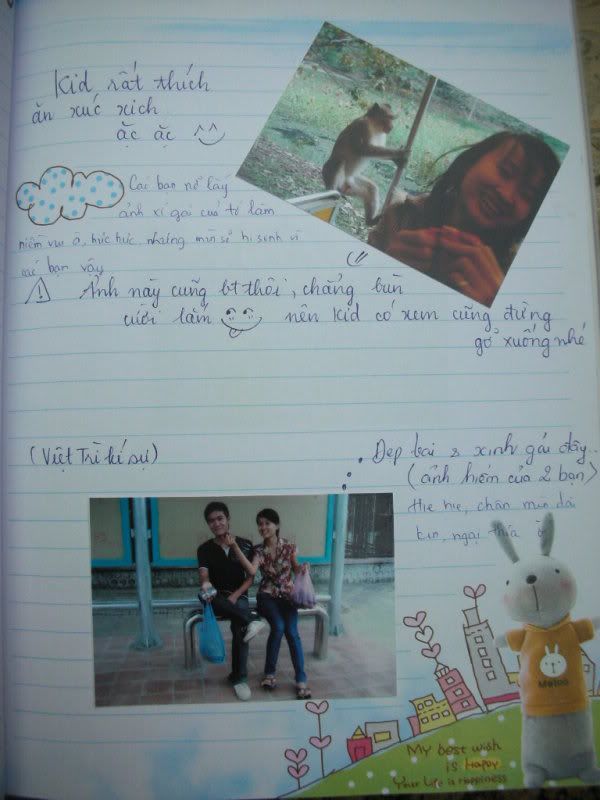 Kid rất thích
ăn xúc xích
ặc ặc
Các bạn nỡ lấy
ảnh xí gái của tớ làm
niềm vui à, hức hức, nhưng mìn sẽ hi sinh vì
các bạn vậy
Ảnh này cũng bt thôi, chẳng bùn
cười lắm nên Kid có xem cũng đừng
gở xuống nhé
(Việt Trì kí sự)
Đẹp trai & xinh gái đây..
(ảnh hiếm của 2 bạn)
Hje hje, chân mìn dài
My best wish
is Happy
Your Life is Happiness